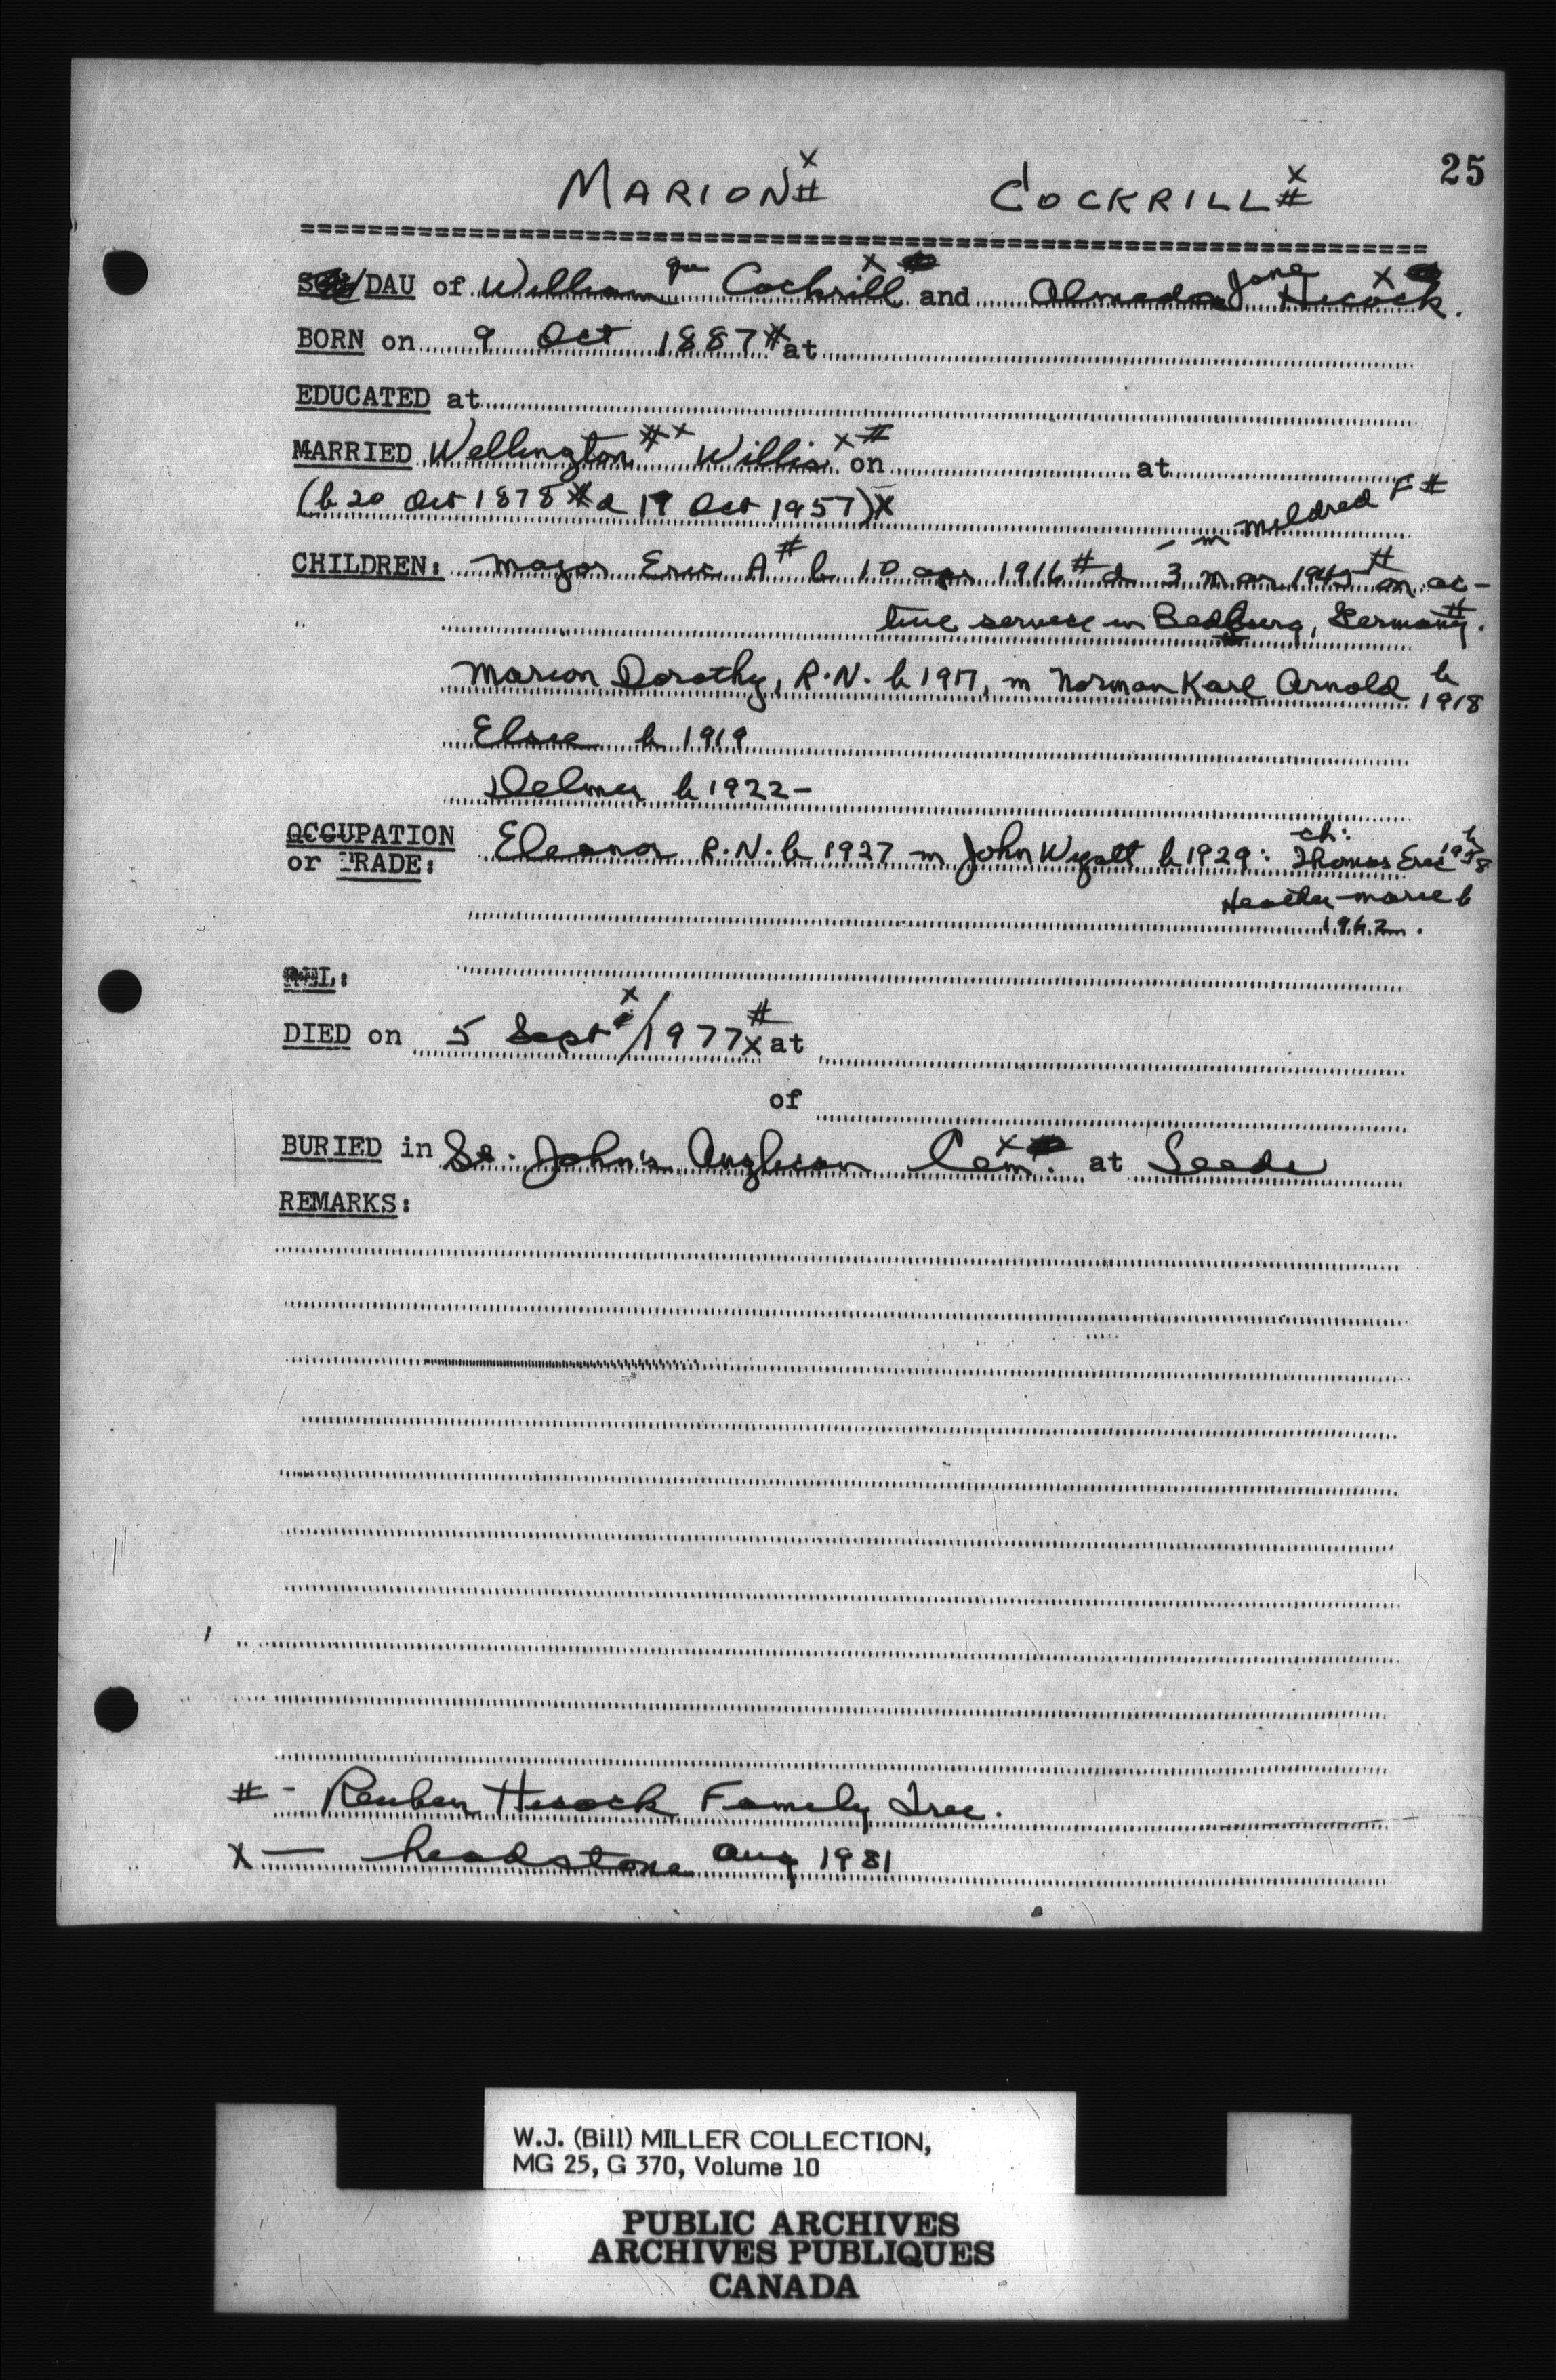 25
MARION x# COCKRILL x#
SON/DAU of William Jr Cockrill x and Almeda Jane Hicock x.
BORN on 9 Oct 1887 # at
EDUCATED at
MARRIED Wellington #x Willis x# on at
(b 20 Oct 1878 # d 19 Oct 1957) x
- m Mildred F #
CHILDREN: Major Eric A # b 10 apr 1916 # d 3 Mar 1945 # on ac-
tive service in Bedburg, Germany #.
Marion Dorothy, R.N. b 1917, m Norman Karl Arnold b 1918
Elsie b 1919
Delmer b 1922 -
OCCUPATION
or TRADE:
Eleanor R.N. b 1927 m John Wyatt b 1929: ch: Thomas Eric b 1958
Heather-Marie b
1962.
REL:
DIED on 5 Sept x/1977 #x at
of
BURIED in St. John's Anglican Cem. x at Leeds
REMARKS:
# - Reuben Hicock Family Tree.
x - headstone Aug 1981
W.J. (Bill) MILLER COLLECTION,
MG 25, G 370, Volume 10
PUBLIC ARCHIVES
ARCHIVES PUBLIQUES
CANADA